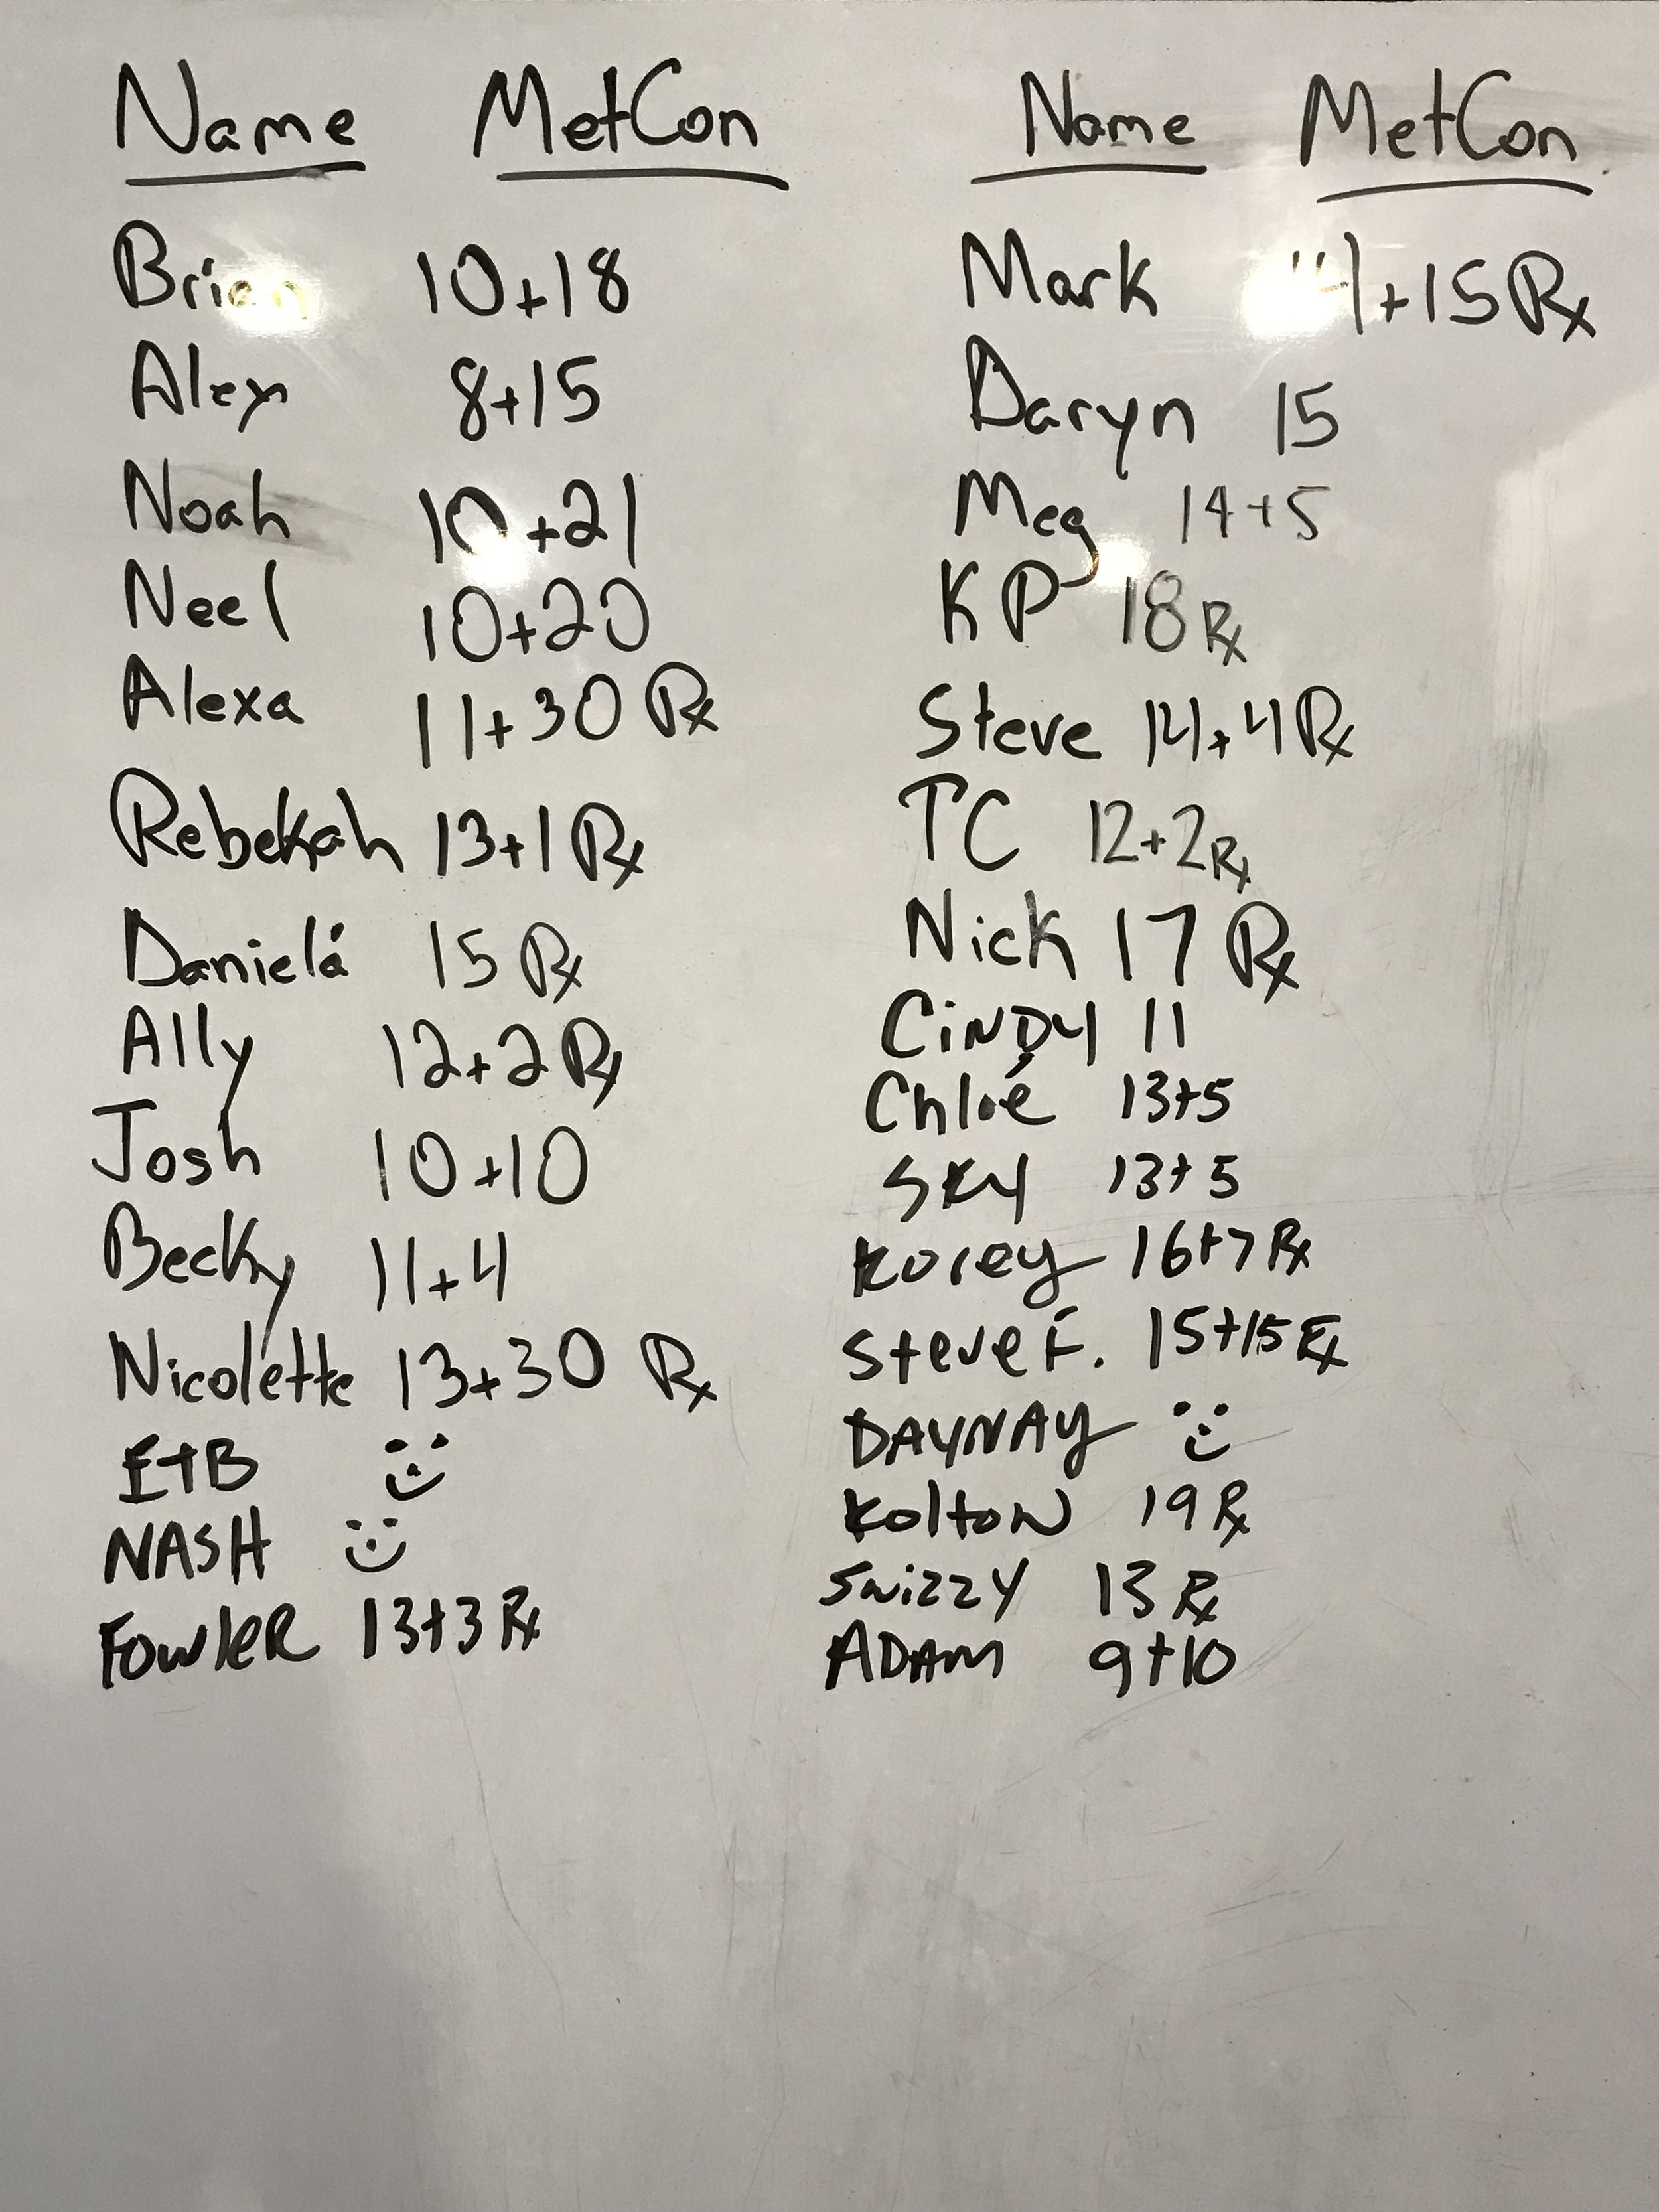 Name MetCon
Brian 10+18
Alex 8+15
Noah 10+21
Neel 10+20
Alexa 11+30 Rx
Rebekah 13+1 Rx
Danielá 15 Rx
Ally 12+2 Rx
Josh 10+10
Becky 11+4
Nicolette 13+30 Rx
E+B
NASH
FowleR 13+3 Rx
Name MetCon
Mark +15 Rx
Daryn 15
Meg 14+5
KP 18 Rx
Steve 14+4 Rx
TC 12+2 Rx
Nick 17 Rx
CiNDY 11
Chloé 13+5
SKY 13+5
Korey 16+7 Rx
Steve F. 15+15 Rx
DAYNAY
KoltoN 19 Rx
Swizzy 13 Rx
ADAM 9+10